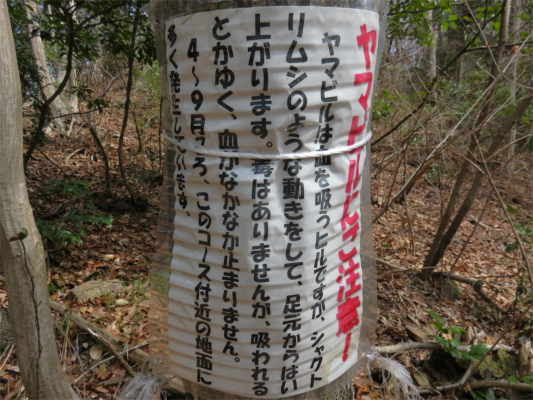 ヤマビルにご注意！
ヤマビルは血を吸うヒルですが、シャクト
リムシのような動きをして、足元からはい
上がります。毒はありませんが、吸われる
とかゆく、血がなかなか止まりません。
4～9月ごろ、このコース付近の地面に
多く発生しています。